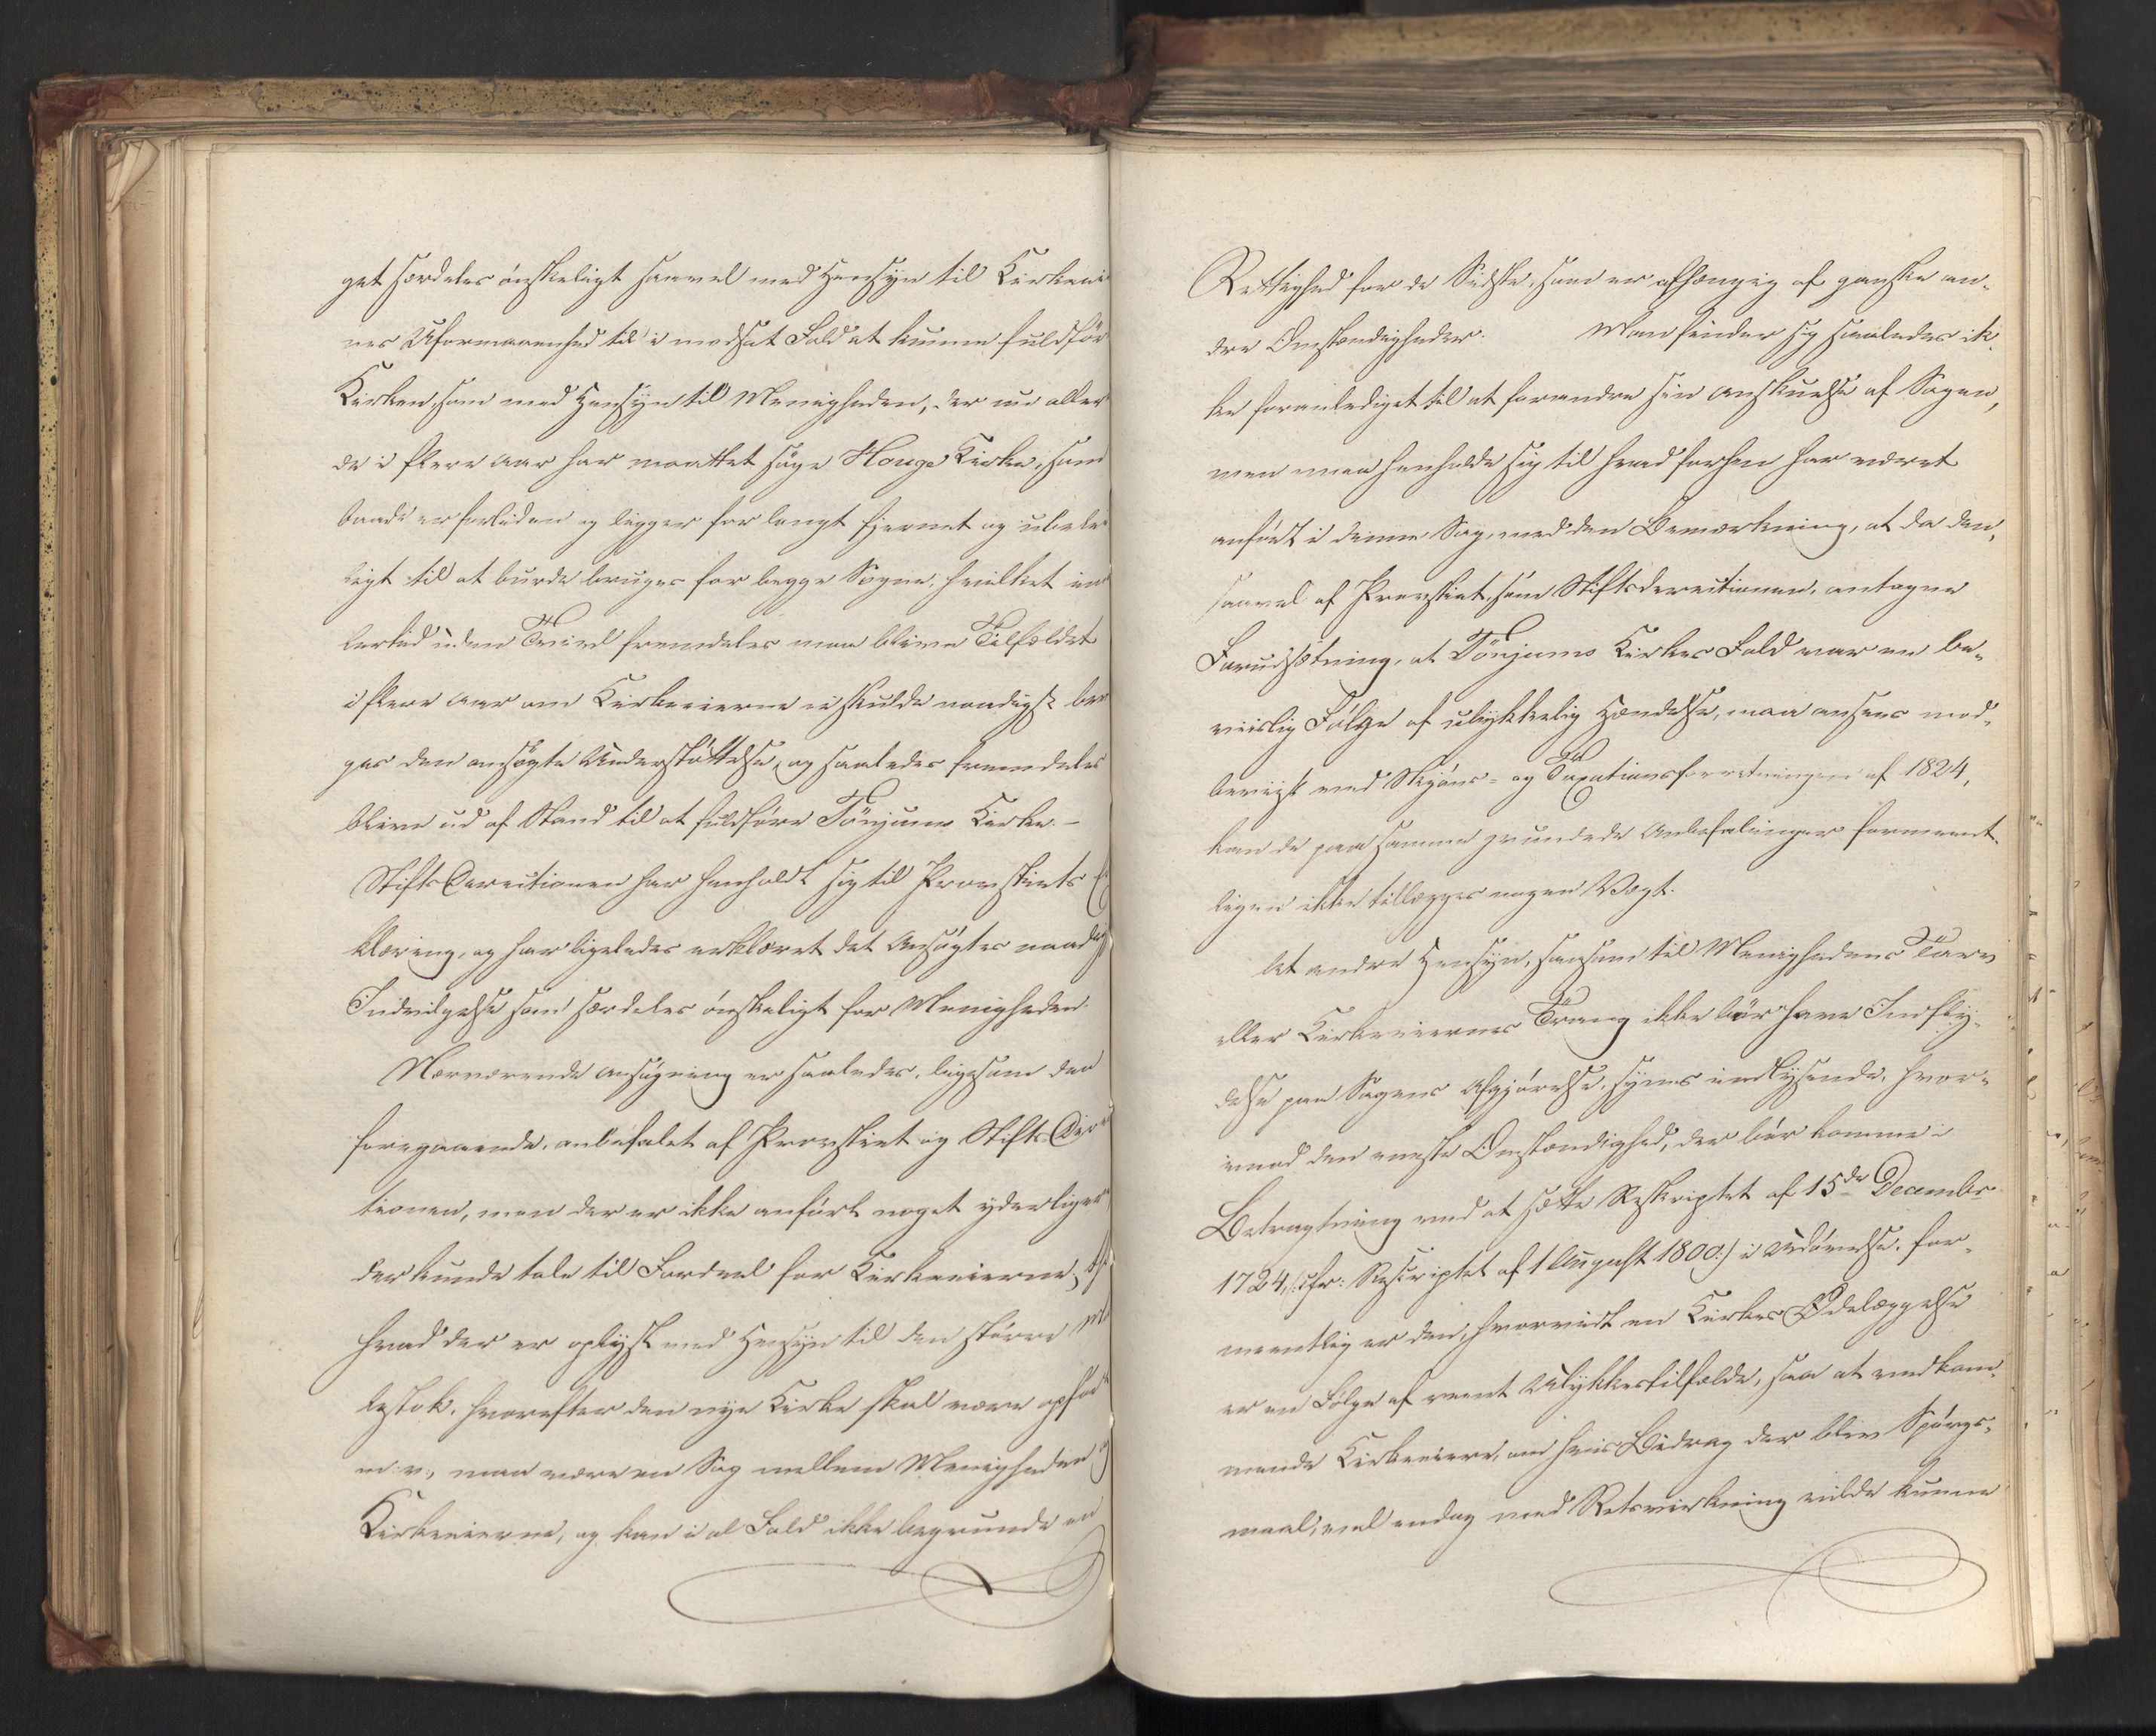 get særdeles önskeligt saavel med Hensyn til Kirkeeier-
nes Uformuenhed til i modsat Fald at kunne fuldföre
Kirken, som med Hensyn til Menigheden, der nu aller
de i flere Aar har maattet söge Houge Kirke, som
baade er forliden og ligger for langt fjernet og ubelei
ligt til at burde bruges for begge Sogne, hvilket im
lertid uden Tvivl fremdeles maa blive Tilfældet
i flere Aar om Kirkeeierne ei skulde naadigst bevil
ges den ansögte Understöttelse, og saaledes fremdeles
blive ud af Stand til at fuldföre Tönjums Kirke. –
Stifts Directionen har henholdt sig til Provstiets Er
klæring, og har ligeledes erklæret det Ansögtes naadigst
Indvilgelse som særdeles önskeligt for Menigheden.
Nærværende Ansögning er saaledes, ligesom den
foregaaende, anbefalet af Provstiet og Stifts Direc
tionen, men der er ikke anfört noget yderligere
der kunde tale til Fordeel for Kirkeeierne; thi
hvad der er oplyst med Hensyn til den större Maa
lestok, hvorefter den nye Kirke skal være opfört
m: v:, maa være en Sag mellem Menigheden og
Kirkeeierne, og kan i al Fald ikke begrunde en
Rettighed for de Sidste, som er afhængig af ganske an-
dre Omstændigheder. Man finder sig saaledes ik-
ke foranlediget til at forandre sin Anskuelse af Sagen,
men maa henholde sig til hvad forhen har været
anfört i denne Sag, med den Bemærkning, at da den,
saavel af Provstiet, som Stiftsdirectionen, antagne
Forudsætning, at Tönjums Kirkes Fald var en be-
viislig Fölge af ulykkelig Hændelse, maa ansees mod-
beviist med Skjöns- og Taxationsforretningen af 1824,
kan de paa samme grundede Anbefalinger formeent-
ligen ikke tillægges nogen Vægt.
At andre Hensyn, saasom til Menighedens Tarv
eller Kirkeeiernes Trang ikke bör have Indfly-
delse paa Sagens Afgjörelse, synes indlysende, hvor-
imod den eneste Omstændighed, der bör komme i
Betragtning ved at sætte Reskriptet af 15de Decembr
1724, /: cfr: Rescriptet af 1 August 1800:/ i Udövelse, for-
meentlig er den, hvorvidt en Kirkes Ödelæggelse
er en Fölge af reent Ulykkestilfælde, saa at vedkom-
mende Kirkeeiere, om hvis Bidrag der blev Spörgs-
maal, vel endog med Retsvirkning vilde kunne